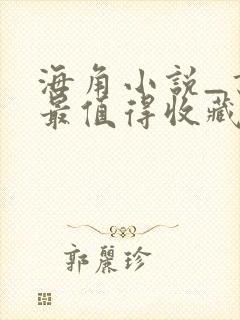 海角小说_
最值得收藏
郭丽珍